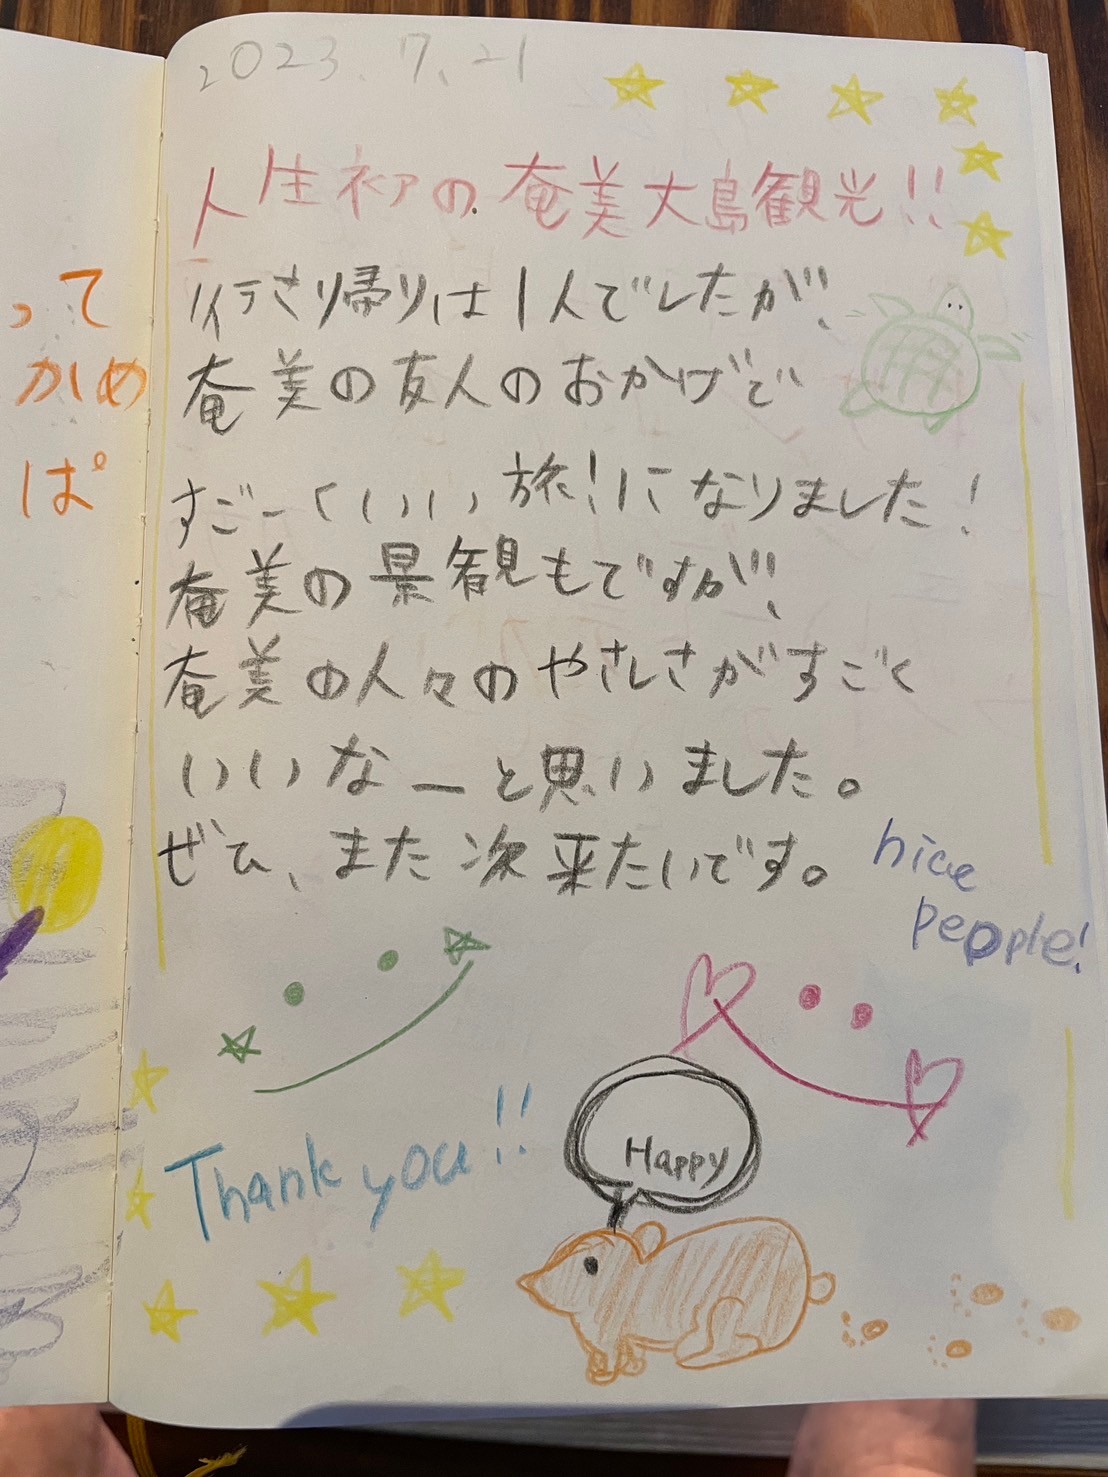 って
かめ
ぱ
2023.7.21
人生初の奄美大島観光!!
行き帰りは1人でしたが、
奄美の友人のおかげで
すごーくいい旅!になりました!
奄美の景観もですが、
奄美の人々のやさしさがすごく
いいなーと思いました。
ぜひ、また次来たいです。
nice
people!
Thank you!!
Happy